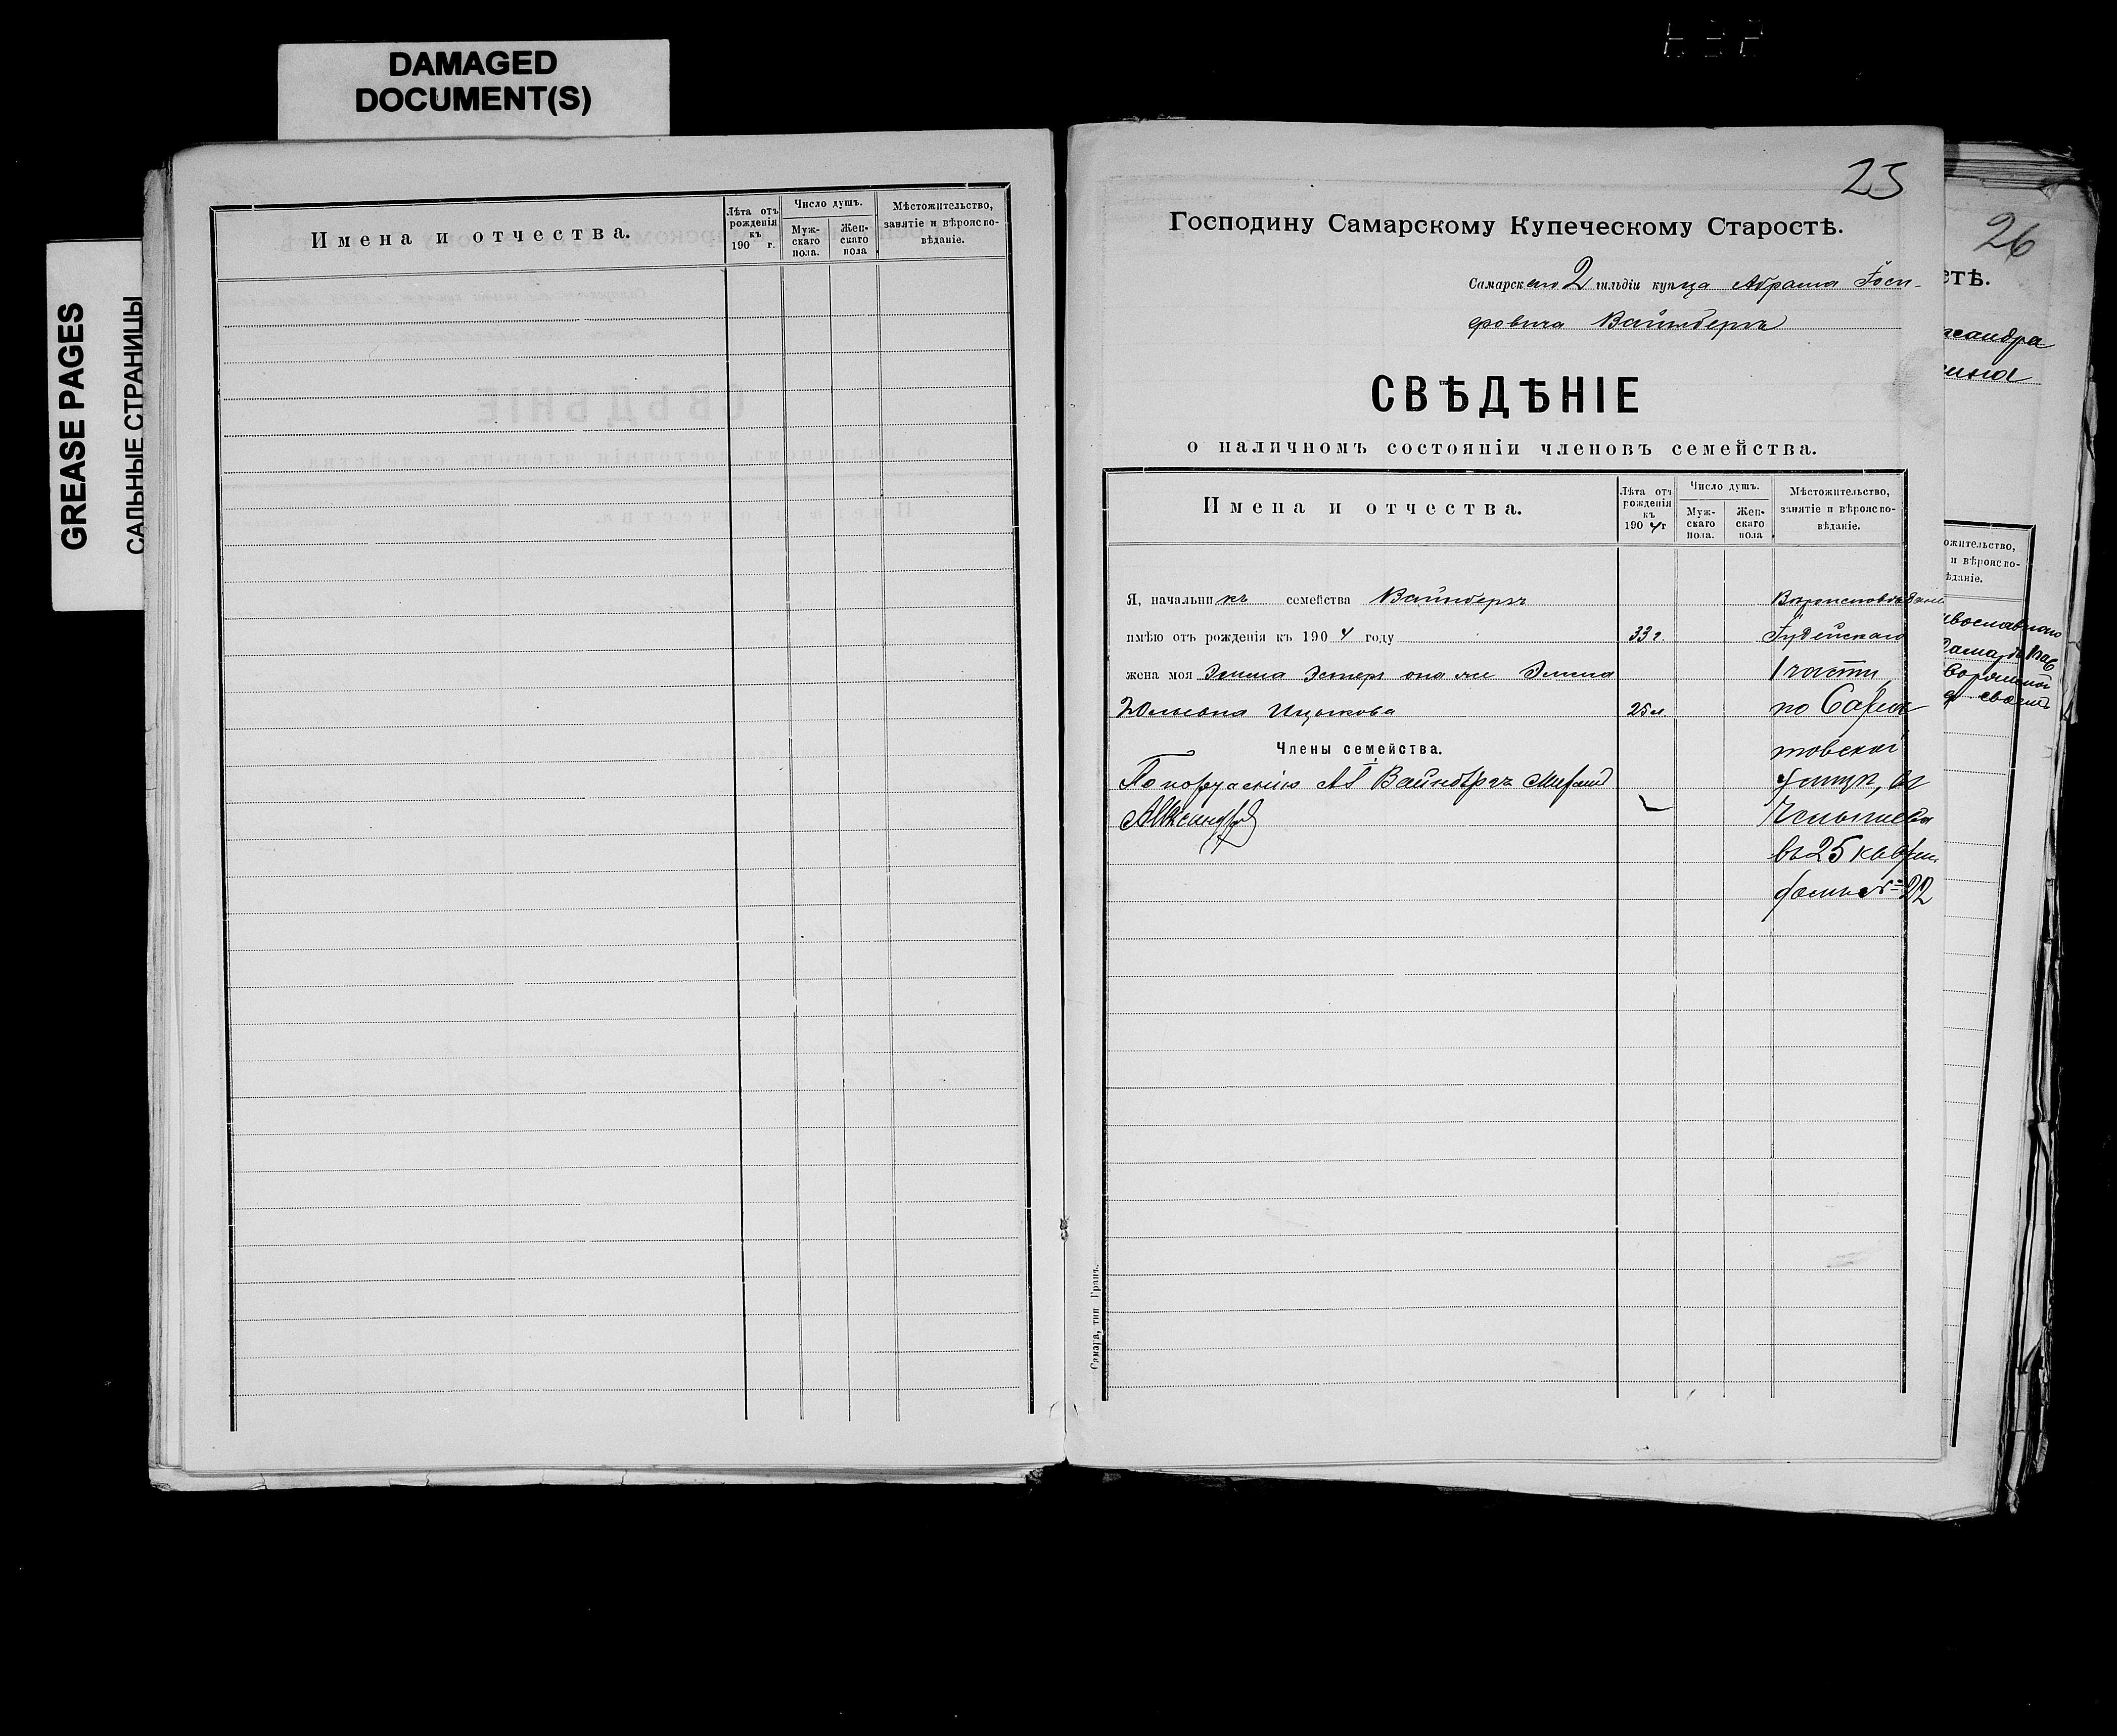 DAMAGED
DOCUMENT(S)
GREASE PAGES
САЛЬНЫЕ СТРАНИЦЫ
Имена и отчества.
Лѣта отъ рожденія къ 190 г.
Число душъ.
Муж-
скаго
пола.
Жен-
скаго
пола
Мѣстожительство,
занятіе и вѣроиспо-
вѣданіе.
25
Господину Самарскому Купеческому Старостѣ.
Самарскаго 2 гильдіи купца Абрама Іоси-
фовича Вайнберга
СВѢДѢНІЕ
о наличномъ состояніи членовъ семейства.
Имена и отчества.
Лѣта отъ
рожденія
къ
190 4 г
Число душъ.
Муж-
скаго
пола.
Жен-
скаго
пола
Мѣстожительство,
занятіе и вѣроиспо-
вѣданіе.
Я, начальникъ семейства Вайнбергъ
имѣю отъ рожденія къ 190 4 году 33 г. Іудейскаго
жена моя Эстеръ она же Эмма 1 части
25 л. по Сара-
Члены семейства. товской
По порученію Вайнбергъ
въ 25 кварт.
домъ № 22
Самара, тип Гранъ.
26
стѣ.
ксандра
ожительство,
и вѣроиспо-
ѣданіе.